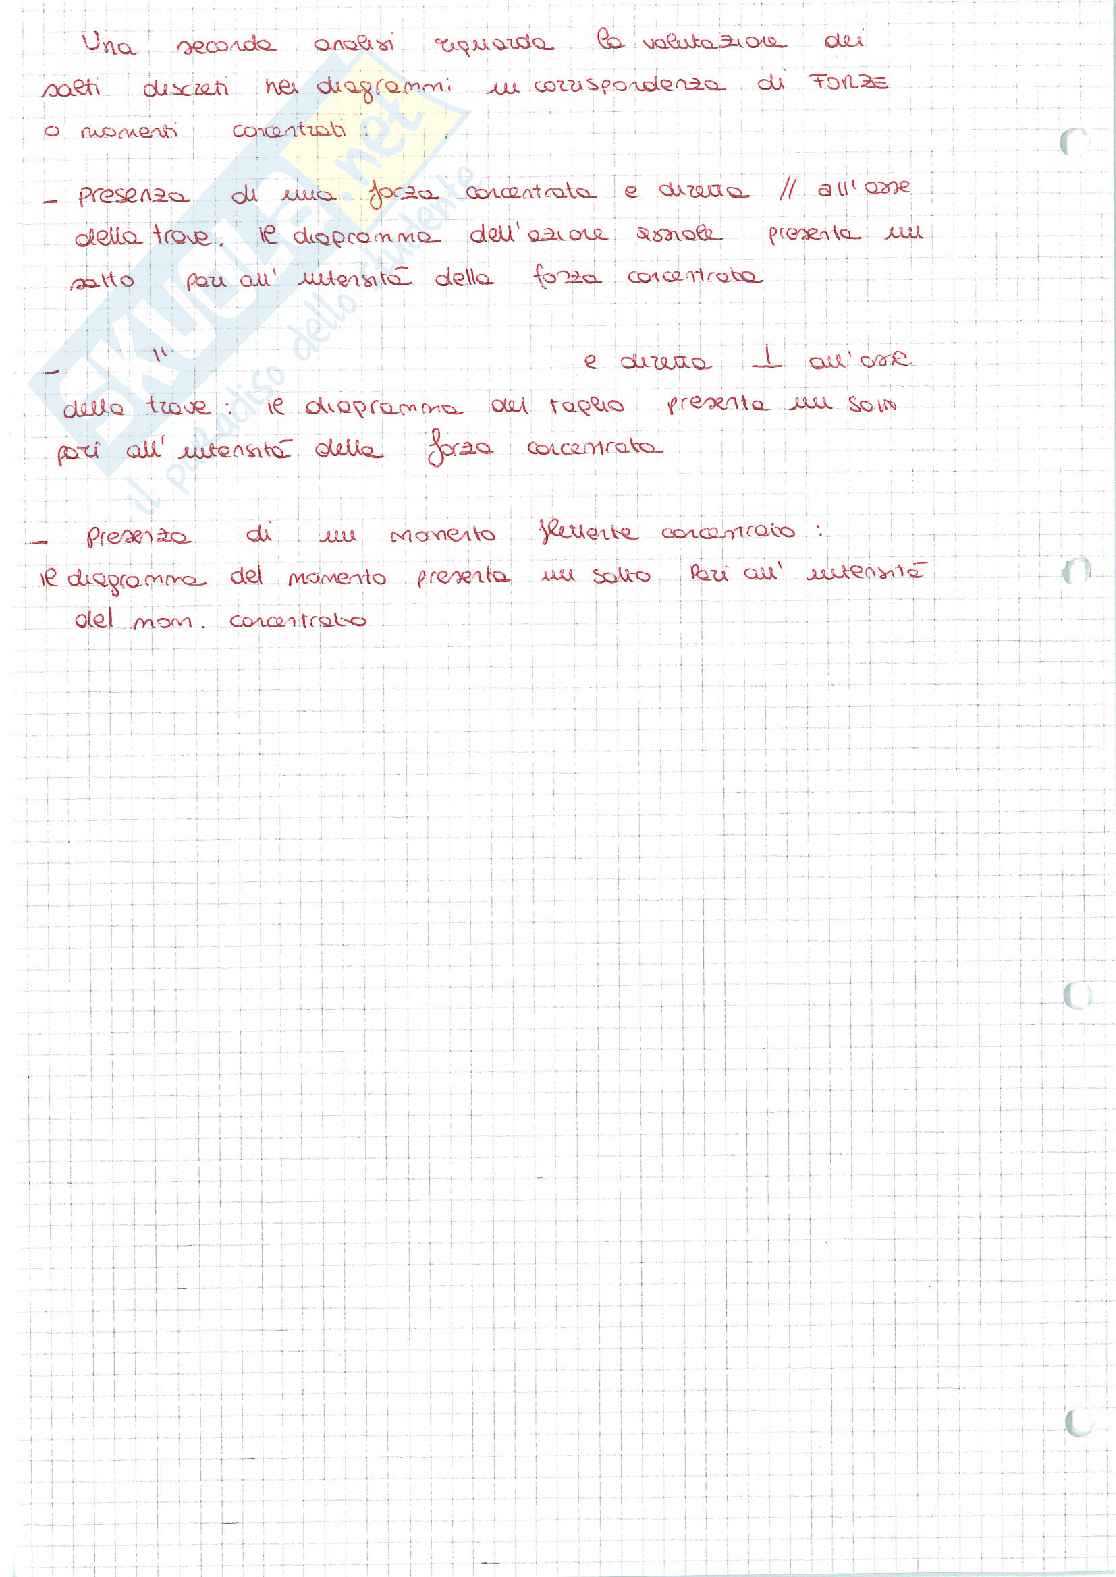 Una seconda analisi riguarda la valutazione dei
salti discreti nei diagrammi in corrispondenza di FORZE
o momenti concentrati :
- presenza di una forza concentrata e diretta // all'asse
della trave. il diagramma dell'azione assiale presenta un
salto pari all'intensità della forza concentrata
- " e diretta ⊥ all'asse
della trave : il diagramma del taglio presenta un salto
pari all'intensità della forza concentrata
- Presenza di un momento flettente concentrato :
il diagramma del momento presenta un salto pari all'intensità
del mom. concentrato
SKUOLA.net
il paradiso dello studente